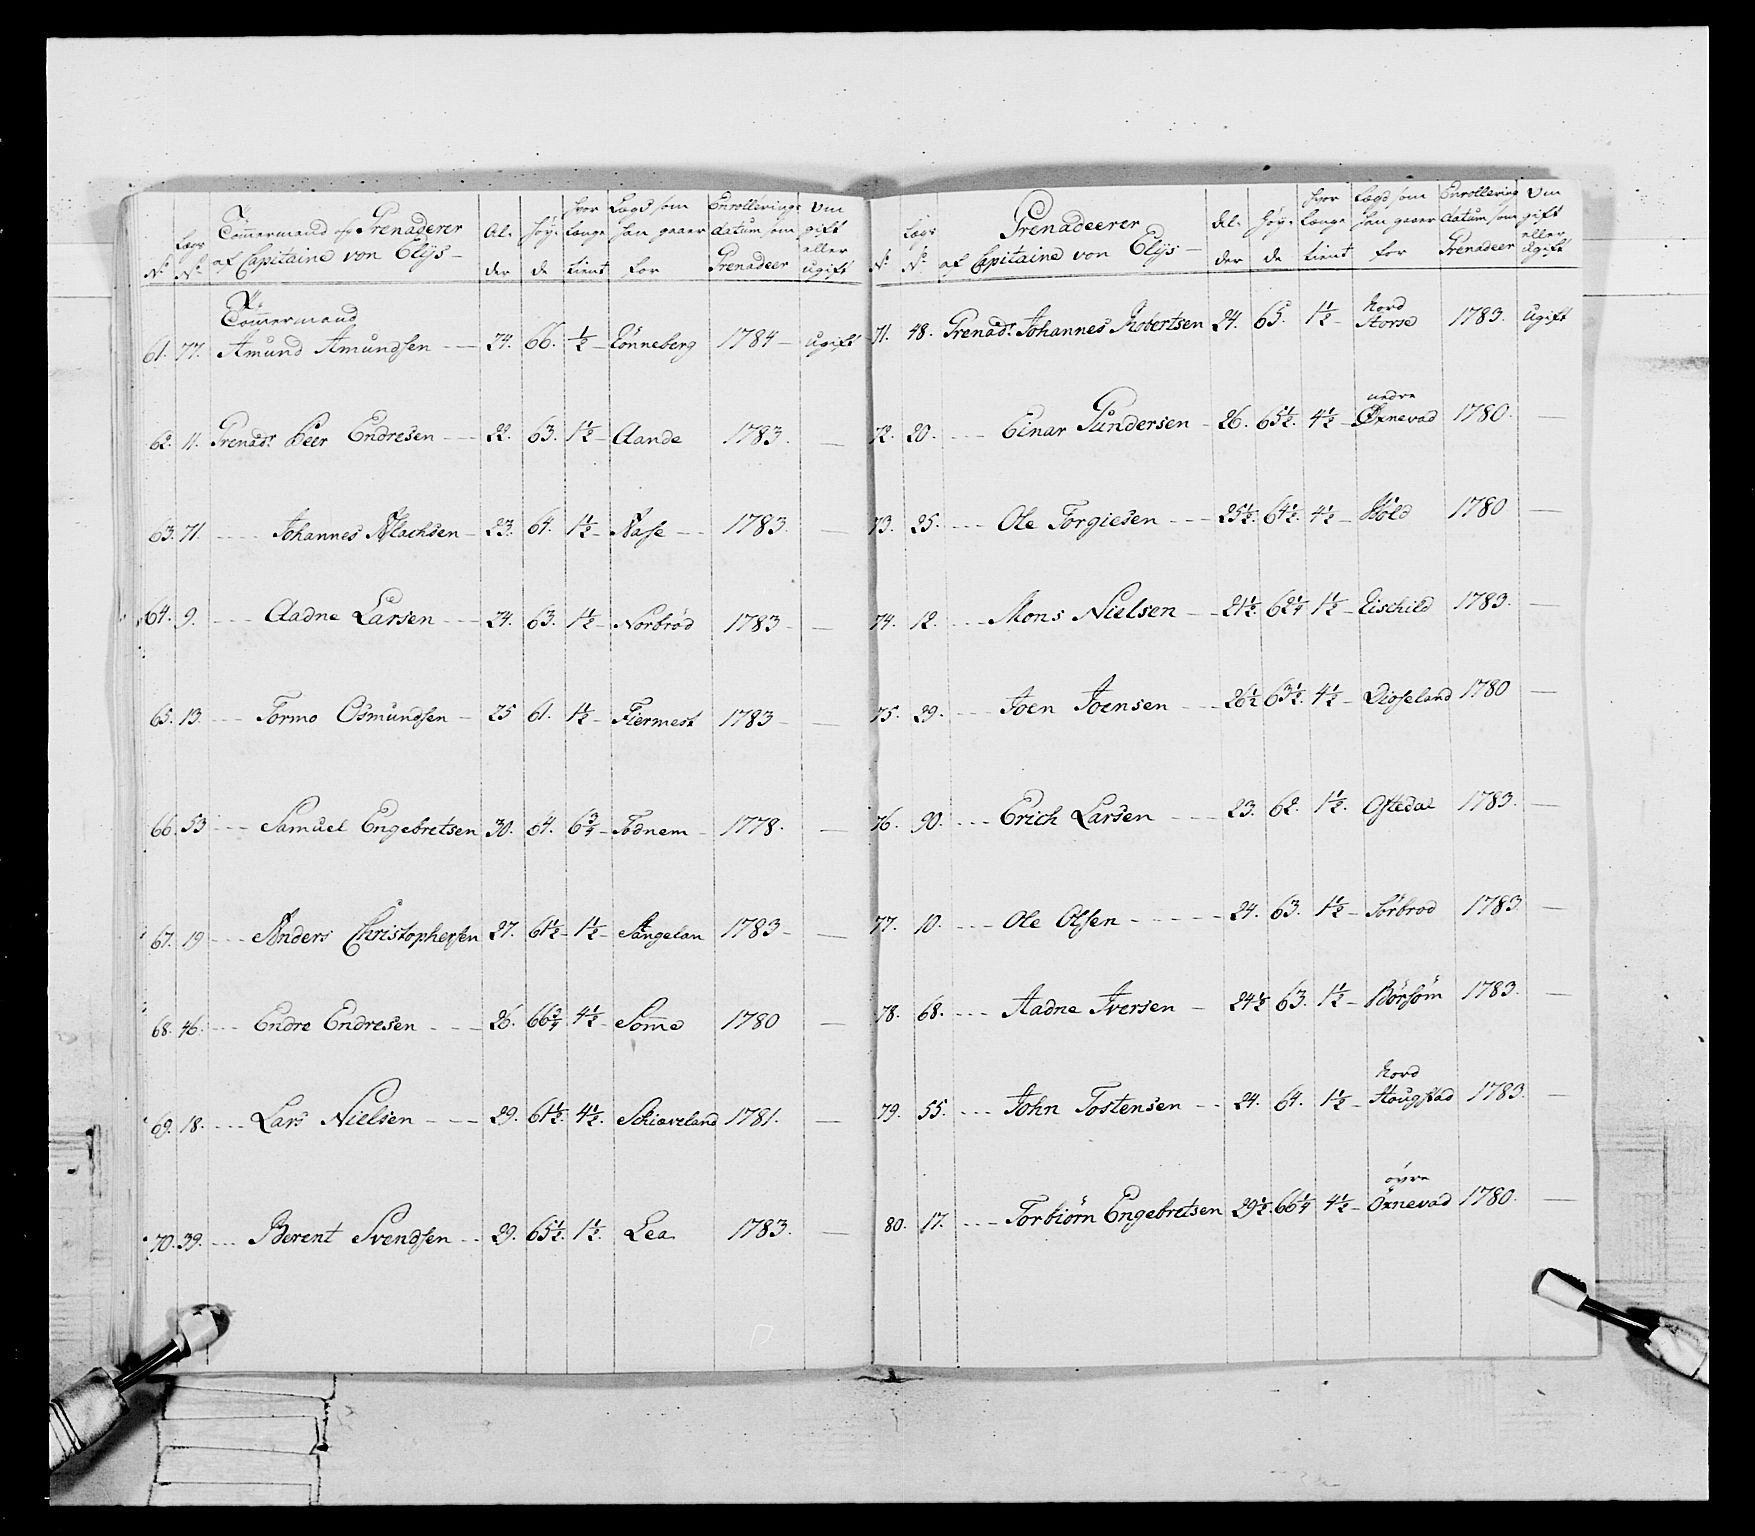 No. Lægs No. Tömermand og Grenaderer af Capitaine von Elÿs Al-der Høy-de Hvor Længe tient Lægd som han gaaer for Enrollerings datum som Grenadeer Om gift eller ugift
Tömermand
61. 77. Amund Amundsen 24. 66. ½ Tönneberg 1784 ugift
62. 11. Grenadr. Peer Endresen 22. 63. 1½ Aande 1783. —
63. 71. Johannes Machsen 23. 64. 1½ Nase 1783. —
64. 9. Aadne Larsen 24. 63. 1½ Norbröd 1783 —
65. 13. Tormo Osmundsen 25 61. 1½ Fiermest 1783 —
66. 53 Samuel Engebretsen 30. 64. 6¾ Todnem 1778. —
67. 19 Anders Christophersen 27. 61½ 1½ Stangelan 1783 —
68. 46. Endre Endresen 26. 66¾ 4½ Some 1780 —
69. 18. Lars Nielsen 29. 61½. 4½. Schiæveland 1781. —
70. 39. Berent Svendsen 29. 65½. 1½. Lea 1783. —
No. Lægs No. Grenadeerer af Capitaine von Elÿs Al-der Høy-de Hvor Længe tient Lægd som han gaaer for Enrollering datum som Grenadeer Om gift eller ugift
Nord
71. 48. Grenadr. Johannes Robertsen 24. 65. 1½ Storse 1783. Ugift
nedre
72. 20. Einar Gundersen 26. 65½. 4½ Øxnevad 1780. —
73. 25. Ole Torgiesen 25½. 64½. 4½ Höld 1780 —
74. 12. Mons Nielsen 21½. 62¼ 1½ Eischild 1783. —
75. 29. Joen Joensen 26½ 63½. 4½ Dioseland 1780 —
76. 90. Erich Larsen 23. 62. 1½. Oftedal 1783. —
77. 10. Ole Olsen 24. 63. 1½ Sörbrod 1783. —
78. 68. Aadne Iversen 24½ 63. 1½ Börsöm 1783. —
Nord
79. 55. John Tostensen 24. 64. 1½ Hougstad 1783. —
öyre
80. 17. Torbiörn Engebretsen 29½. 66¼ 4½ Öxnevad 1780. —